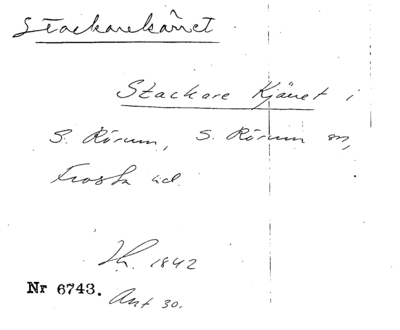 Stackarekärret
Stackare Kjäret i
S. Rörum, S. Rörum sn,
Frosta hd.
Th. 1842
Nr 6743. Ant 30.